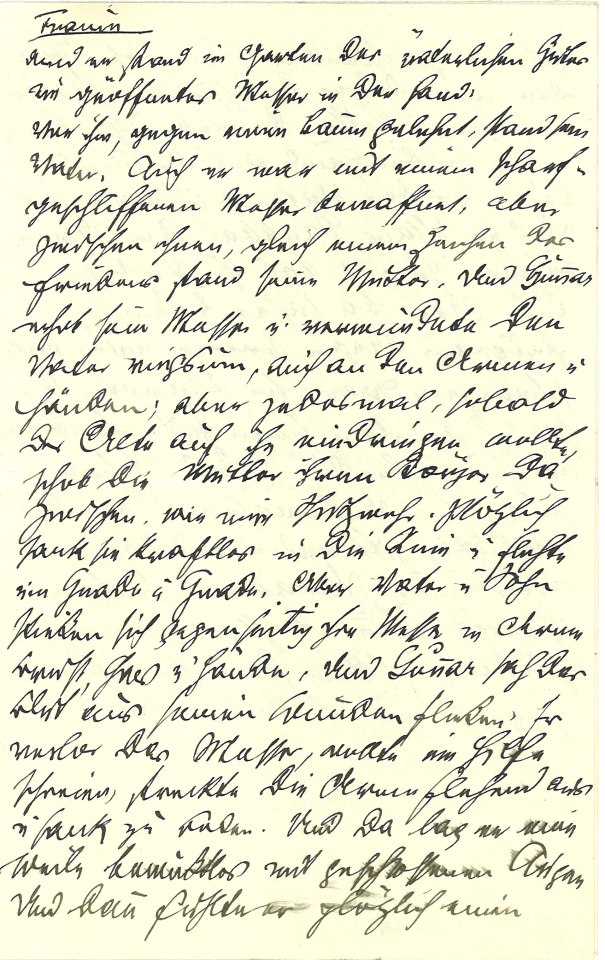 Traum
und er stand im Garten des väterlichen Gutes
ein geöffnetes Messer in der Hand;
vor ihm, gegen einen Baum gelehnt, stand sein
Vater. Auch er war mit einem scharf-
geschliffenen Messer bewaffnet, aber
zwischen ihnen, gleich einem Zeichen des
Friedens stand seine Mutter. Und Gunar
erhob sein Messer u. verwundete den
Vater ringsum, auch an den Armen u
Händen; aber jedesmal, sobald
der Alte auf ihn eindringen wollte,
schob die Mutter ihren Körper da
zwischen, wie eine Schutzwehr. Plötzlich
sank sie kraftlos in die Knie u flehte
um Gnade u Gnade. Aber Vater u Sohn
stießen sich gegenseitig ihre Messer in Arme
Brust, Hals u Hände, und Gunar sah das
Blut aus seinen Wunden fließen; Er
verlor das Messer, wollte um Hilfe
schreien, streckte die Arme flehend aus
u sank zu Boden. Und da lag er eine
Weile bewußtlos mit geschlossenen Augen
Und dann fühlte er plötzlich einen